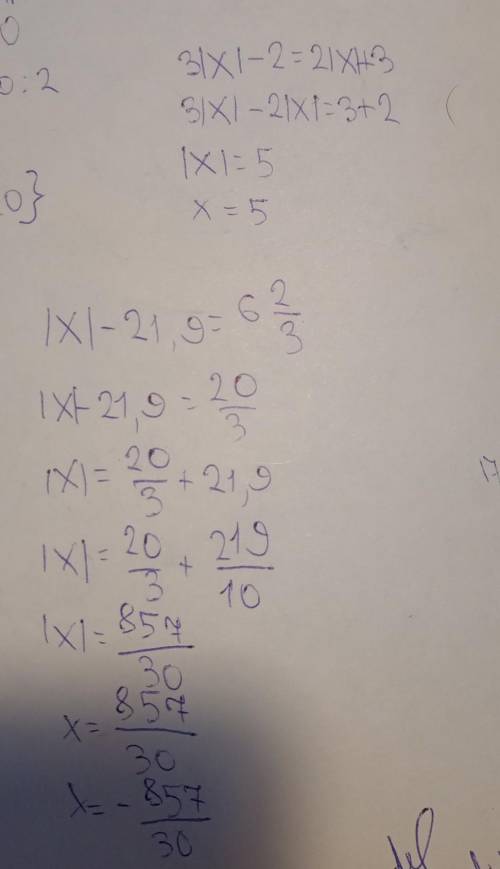 0
0:2
0}
3|x|-2=2|x|+3
3|x|-2|x|=3+2
|x|=5
x=5
|x|-21,9=6 2/3
|x|-21,9=20/3
|x|=20/3+21,9
|x|=20/3+219/10
|x|=857/30
x=857/30
x=-857/30